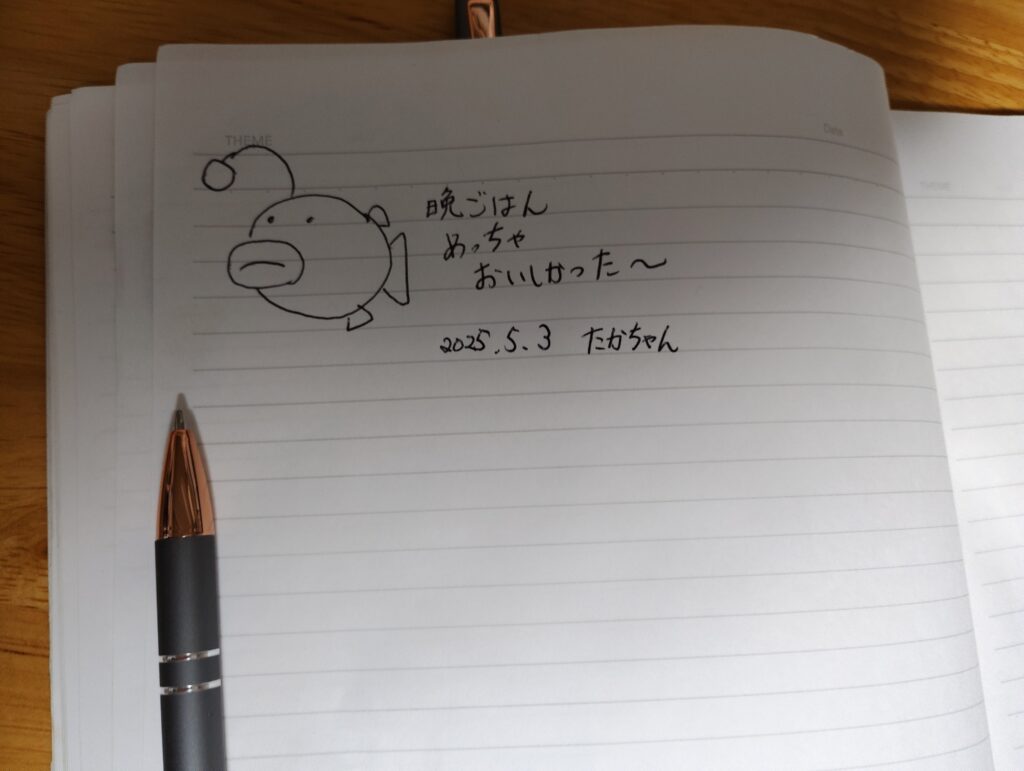 THEME
Date
晩ごはん
めっちゃ
おいしかった〜
2025.5.3 たかちゃん
THEME